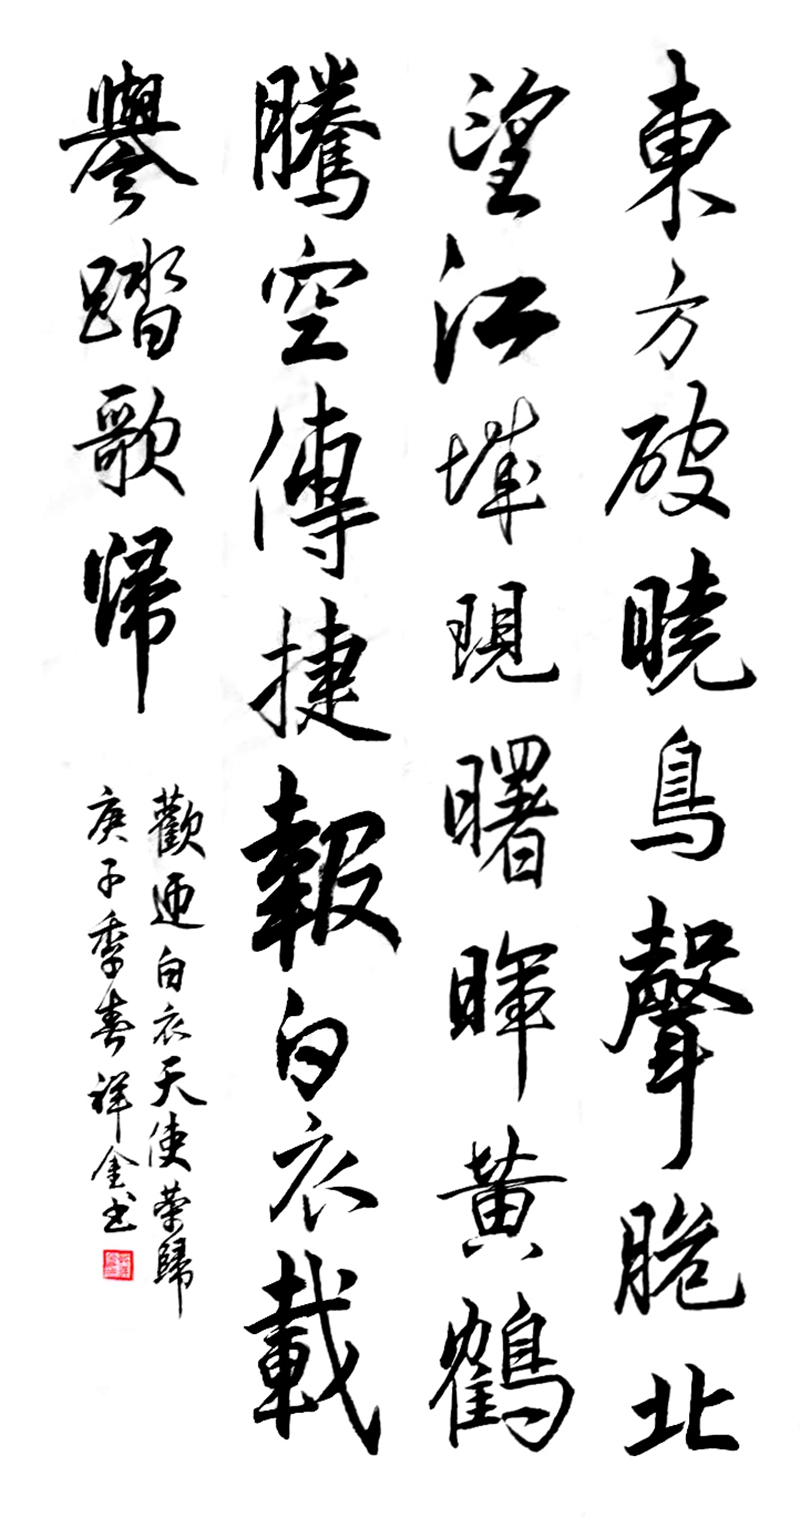 東方破曉鳥聲脆北
望江城現曙暉黄鶴
騰空傳捷報白衣載
譽踏歌歸
歡迎白衣天使榮歸
庚子季春祥金书